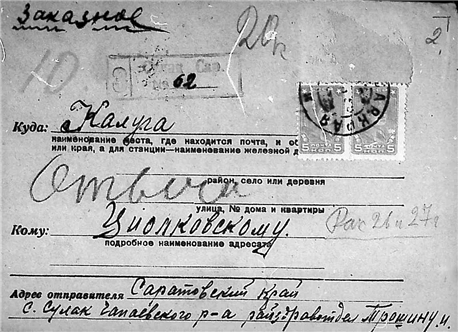 Заказное
20к
2.
10
№ 62
5 5 5 5
Куда: Калуга
наименование места, где находится почта, и об
или края, а для станции—наименование железной д
район, село или деревня
улица, № дома и квартиры
Кому: Циолковскому.
подробное наименование адресата
Адрес отправителя Саратовский край
с. Сулак Чапаевского р-а райздравотдел Трошину И.